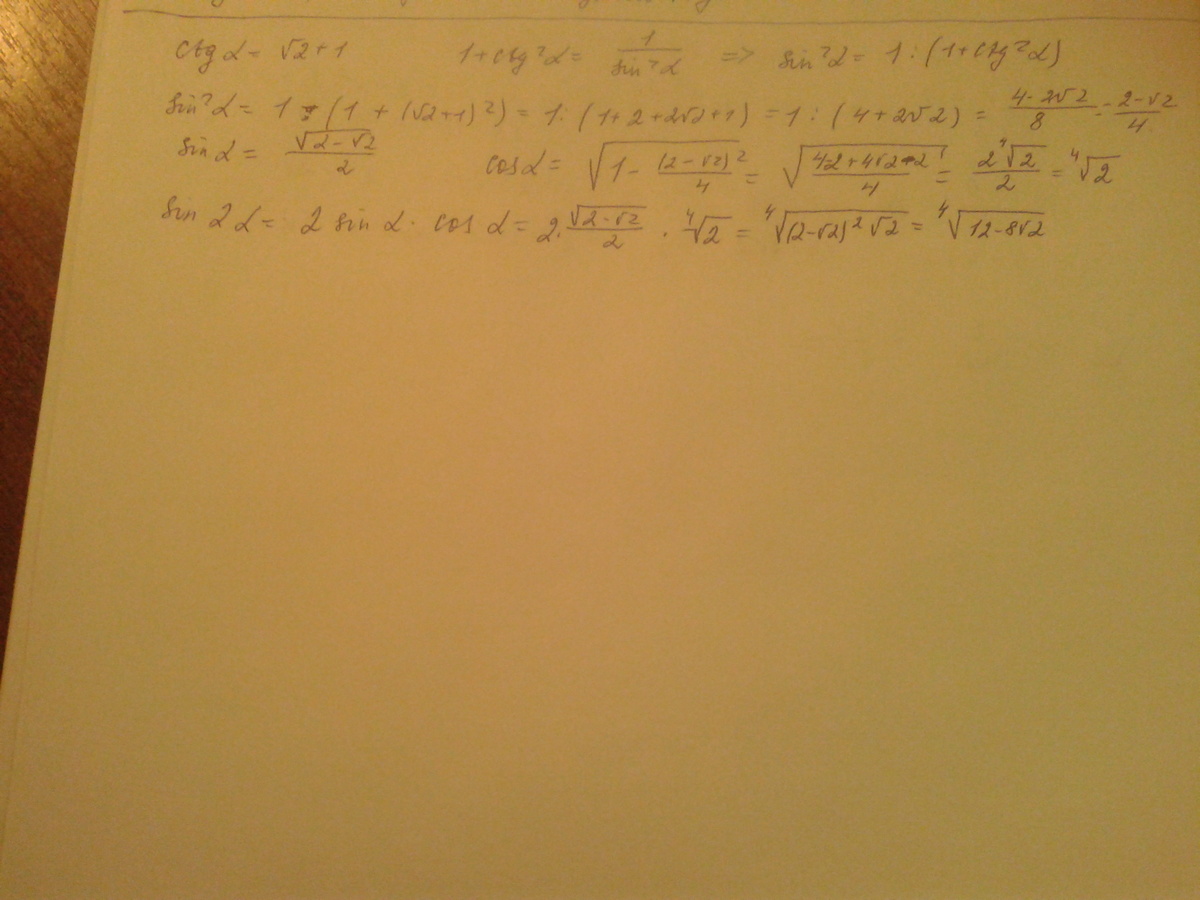 ctg α = √2+1 1+ctg²α = 1/sin²α => sin²α = 1 : (1+ctg²α)
sin²α = 1 : (1 + (√2+1)²) = 1 : (1+2+2√2+1) = 1 : (4+2√2) = (4-2√2)/8 = (2-√2)/4
sin α = √(2-√2)/2 cos α = √(1 - (2-√2)²/4) = √((4-2+4√2-2)/4) = 2⁴√2/2 = ⁴√2
sin 2α = 2 sin α · cos α = 2 · √(2-√2)/2 · ⁴√2 = ⁴√((2-√2)²√2) = ⁴√(12-8√2)